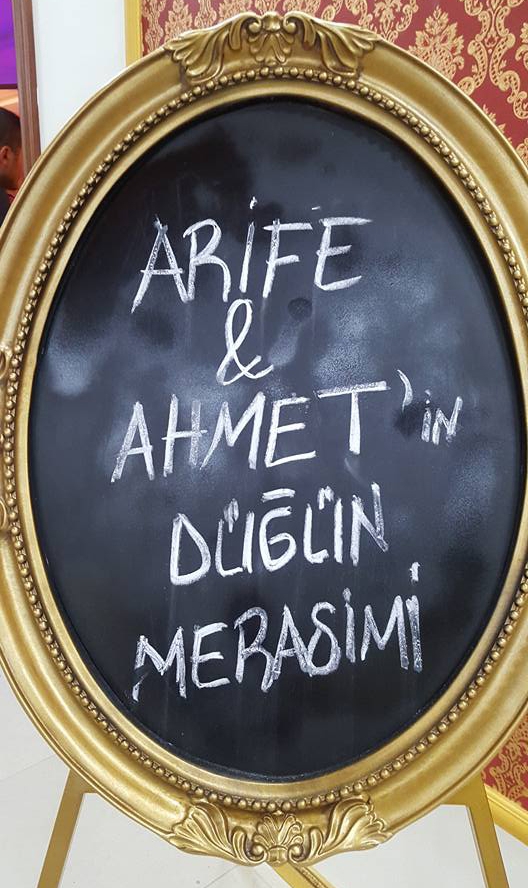 ARİFE
&
AHMET'İN
DÜĞÜN
MERASİMİ